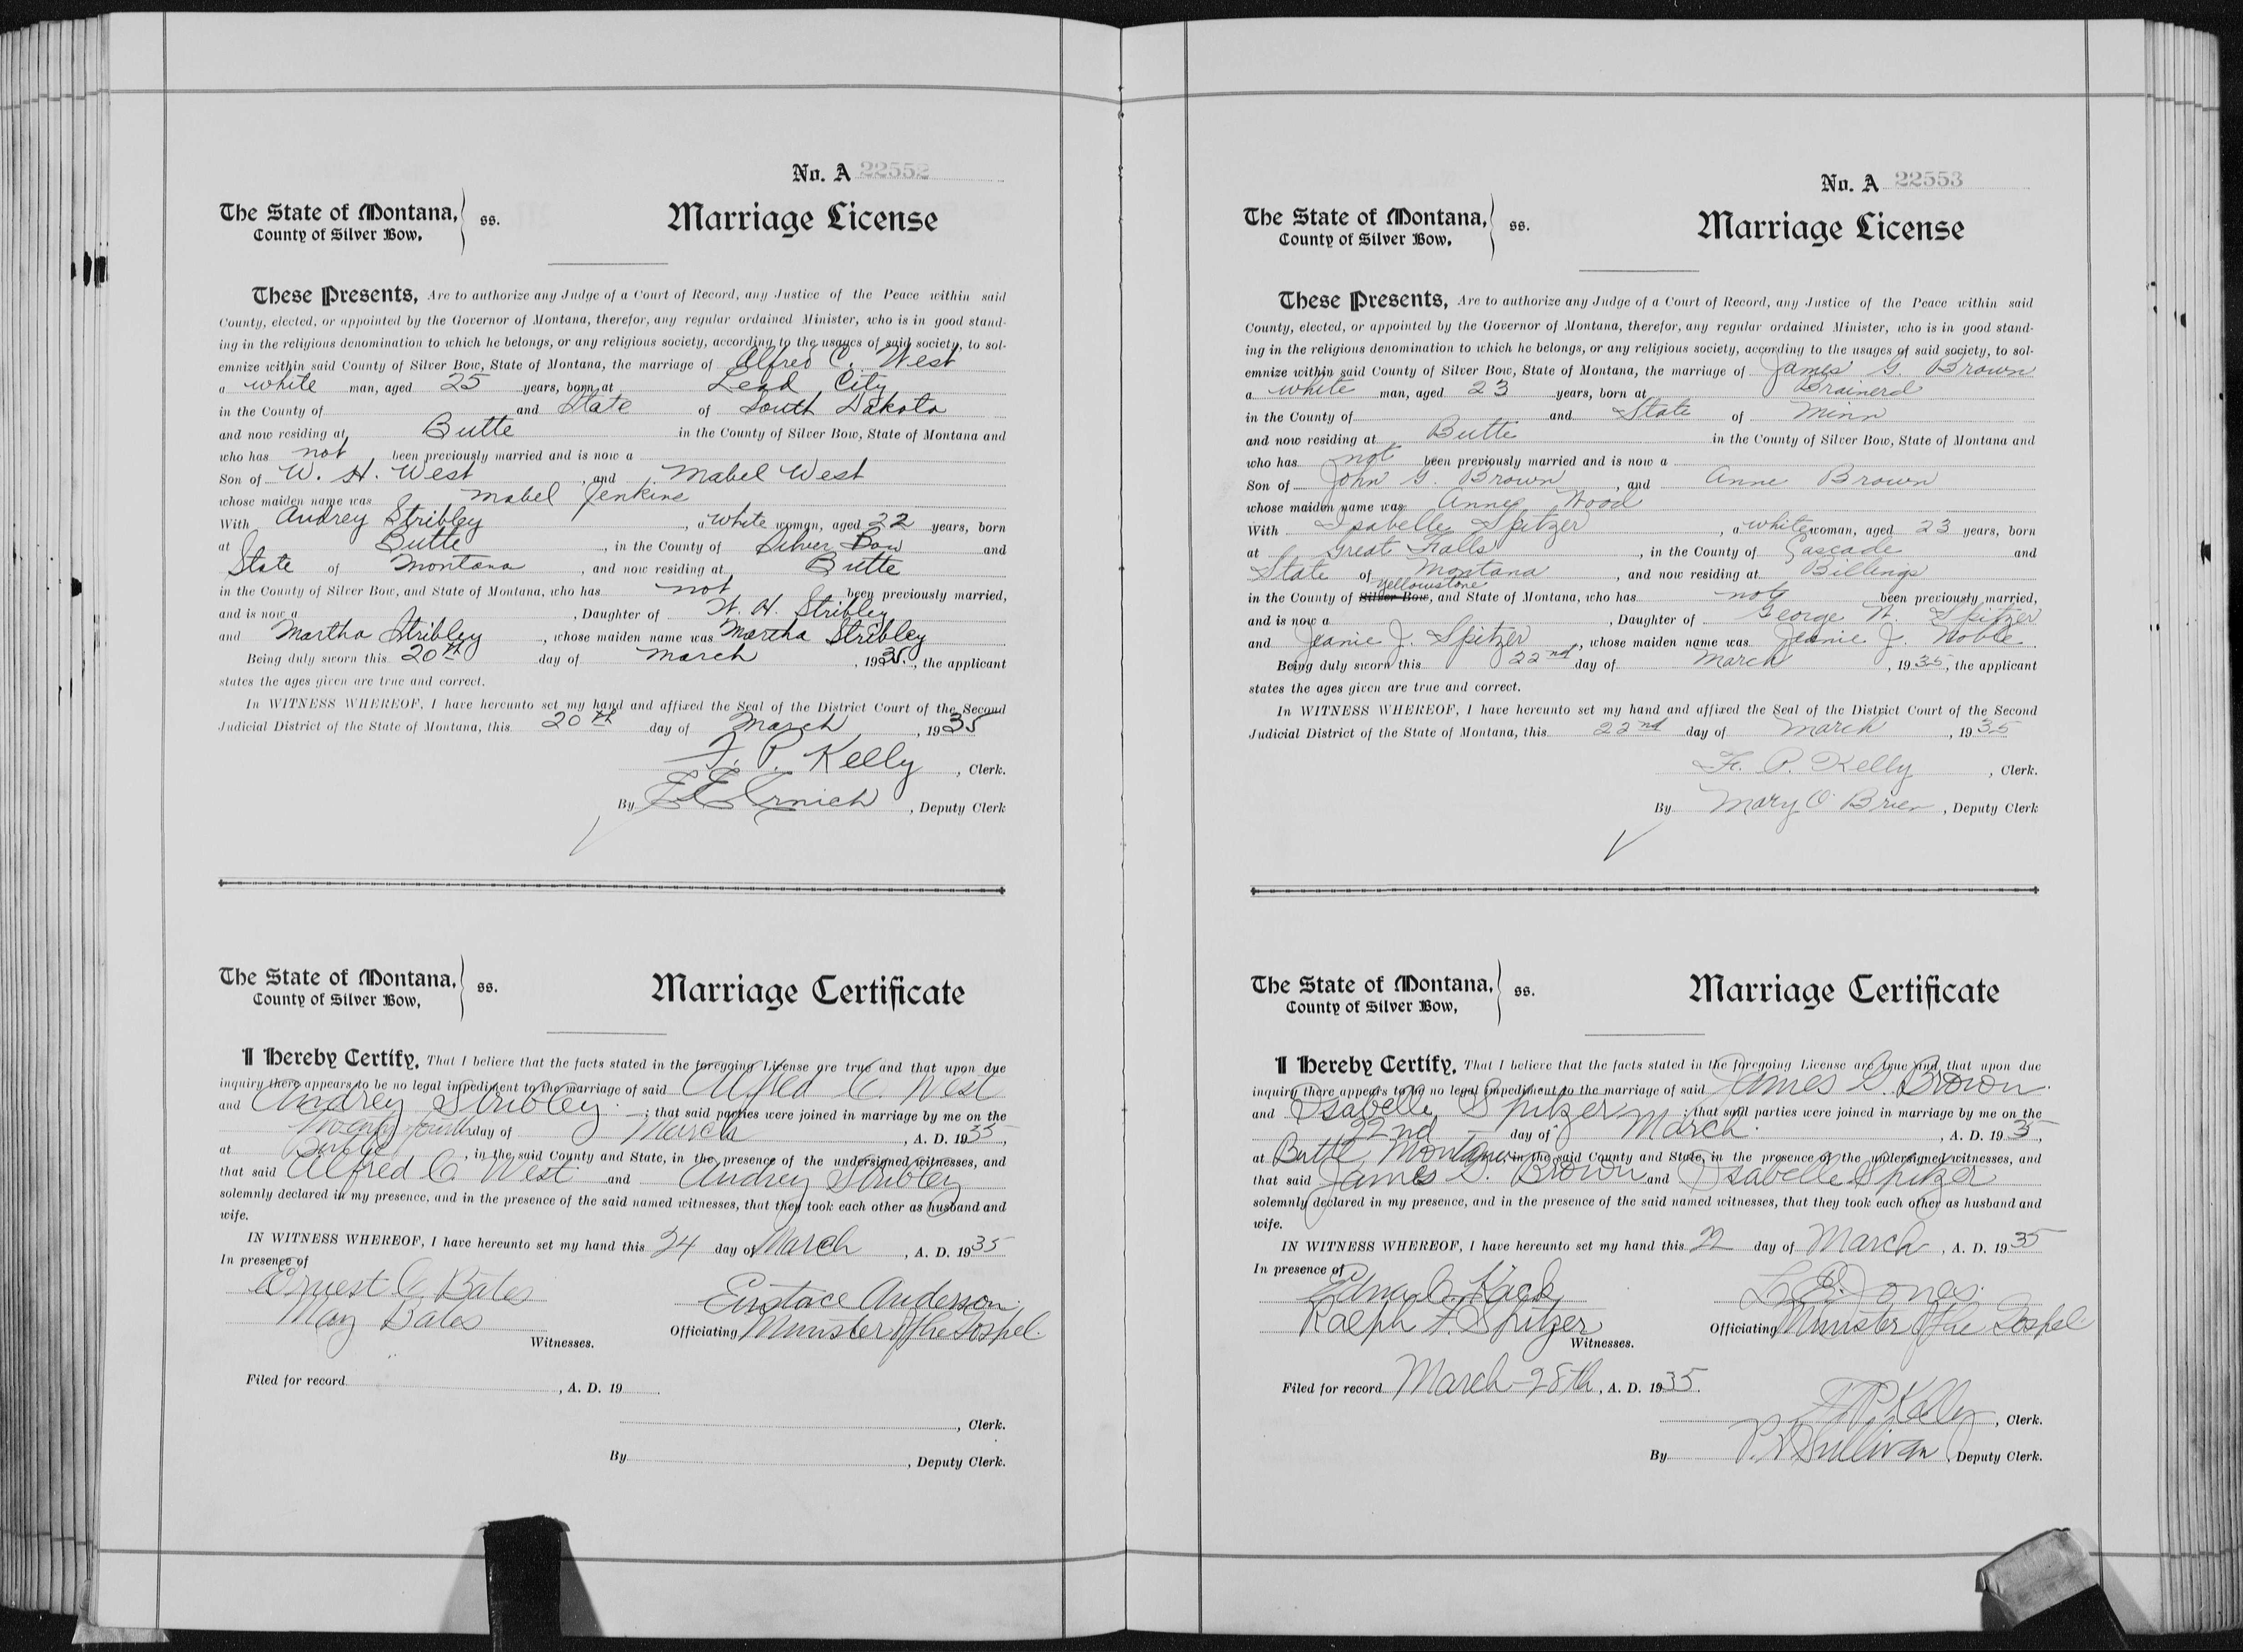 No. A 22552
The State of Montana, County of Silver Bow, } ss. Marriage License
These Presents, Are to authorize any Judge of a Court of Record, any Justice of the Peace within said
County, elected, or appointed by the Governor of Montana, therefor, any regular ordained Minister, who is in good stand-
ing in the religious denomination to which he belongs, or any religious society, according to the usages of said society, to sol-
emnize within said County of Silver Bow, State of Montana, the marriage of Alfred C. West
a white man, aged 25 years, born at Lead City
in the County of and State of South Dakota
and now residing at Butte in the County of Silver Bow, State of Montana and
who has not been previously married and is now a
Son of W. H. West, and Mabel West
whose maiden name was Mabel Jenkins
With Audrey Stribley, a white woman, aged 22 years, born
at Butte, in the County of Silver Bow and
State of Montana, and now residing at Butte
in the County of Silver Bow, and State of Montana, who has not been previously married,
and is now a , Daughter of W. H. Stribley
and Martha Stribley, whose maiden name was Martha Stribley
Being duly sworn this 20th day of March, 1935., the applicant
states the ages given are true and correct.
In WITNESS WHEREOF, I have hereunto set my hand and affixed the Seal of the District Court of the Second
Judicial District of the State of Montana, this 20th day of March, 1935
F. P. Kelly, Clerk.
By , Deputy Clerk
The State of Montana, County of Silver Bow, } ss. Marriage Certificate
I Hereby Certify, That I believe that the facts stated in the foregoing License are true and that upon due
inquiry there appears to be no legal impediment to the marriage of said Alfred C. West
and Audrey Stribley ; that said parties were joined in marriage by me on the
Twenty fourth day of March, A. D. 1935,
at Butte, in the said County and State, in the presence of the undersigned witnesses, and
that said Alfred C. West and Audrey Stribley
solemnly declared in my presence, and in the presence of the said named witnesses, that they took each other as husband and
wife.
IN WITNESS WHEREOF, I have hereunto set my hand this 24 day of March, A. D. 1935
In presence of
Ernest C. Bates Eustace Anderson.
May Bates Officiating Minister of the Gospel.
Witnesses.
Filed for record , A. D. 19
, Clerk.
By , Deputy Clerk.
No. A 22553
The State of Montana, County of Silver Bow, } ss. Marriage License
These Presents, Are to authorize any Judge of a Court of Record, any Justice of the Peace within said
County, elected, or appointed by the Governor of Montana, therefor, any regular ordained Minister, who is in good stand-
ing in the religious denomination to which he belongs, or any religious society, according to the usages of said society, to sol-
emnize within said County of Silver Bow, State of Montana, the marriage of James G. Brown
a white man, aged 23 years, born at Brainerd
in the County of and State of Minn
and now residing at Butte in the County of Silver Bow, State of Montana and
who has not been previously married and is now a
Son of John G. Brown, and Anne Brown
whose maiden name was Anne Wood
With Isabelle Spitzer, a white woman, aged 23 years, born
at Great Falls, in the County of Cascade and
State of Montana, and now residing at Billings
in the County of Silver Bow Yellowstone, and State of Montana, who has not been previously married,
and is now a , Daughter of George W. Spitzer
and Jeanie J. Spitzer, whose maiden name was Jeanie J. Noble
Being duly sworn this 22nd day of March, 1935, the applicant
states the ages given are true and correct.
In WITNESS WHEREOF, I have hereunto set my hand and affixed the Seal of the District Court of the Second
Judicial District of the State of Montana, this 22nd day of March, 1935
F. P. Kelly, Clerk.
By Mary O'Brien, Deputy Clerk
The State of Montana, County of Silver Bow, } ss. Marriage Certificate
I Hereby Certify, That I believe that the facts stated in the foregoing License are true and that upon due
inquiry there appears to be no legal impediment to the marriage of said James G. Brown.
and Isabelle Spitzer ; that said parties were joined in marriage by me on the
22nd day of March. , A. D. 1935,
at Butte, Montana, in the said County and State, in the presence of the undersigned witnesses, and
that said James G. Brown and Isabelle Spitzer
solemnly declared in my presence, and in the presence of the said named witnesses, that they took each other as husband and
wife.
IN WITNESS WHEREOF, I have hereunto set my hand this 22 day of March, A. D. 1935
In presence of
Edna C. L. B. Jones.
Ralph F. Spitzer Officiating Minister of the Gospel.
Witnesses.
Filed for record March 28th, A. D. 1935.
F. P. Kelly, Clerk.
By P. Sullivan, Deputy Clerk.